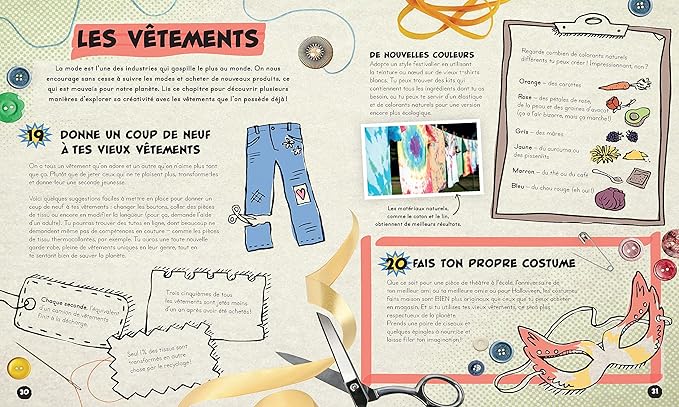 LES VÊTEMENTS
La mode est l'une des industries qui gaspille le plus au monde. On nous
encourage sans cesse à suivre les modes et acheter de nouveaux produits, ce
qui est mauvais pour notre planète. Lis ce chapitre pour découvrir plusieurs
manières d'explorer sa créativité avec les vêtements que l'on possède déjà !
19 DONNE UN COUP DE NEUF
À TES VIEUX VÊTEMENTS
On a tous un vêtement qu'on adore et un autre qu'on n'aime plus tant
que ça. Plutôt que de jeter ceux qui ne te plaisent plus, transforme-les
et donne-leur une seconde jeunesse.
Voici quelques suggestions faciles à mettre en place pour donner un
coup de neuf à tes vêtements : changer les boutons, coller des pièces de
tissu ou encore en modifier la longueur (pour ça, demande l'aide
d'un adulte). Tu pourras trouver des tutos en ligne, dont beaucoup ne
demandent même pas de compétences en couture – comme les pièces
de tissu thermocollantes, par exemple. Tu auras une toute nouvelle
garde-robe, pleine de vêtements uniques en leur genre, tout en
te sentant bien de sauver la planète.
Chaque seconde, l'équivalent
d'un camion de vêtements
finit à la décharge.
Trois cinquièmes de tous
les vêtements sont jetés moins
d'un an après avoir été achetés !
Seul 1% des tissus sont
transformés en autre
chose par le recyclage !
30
DE NOUVELLES COULEURS
Adopte un style festivalier en utilisant
la teinture au nœud sur de vieux t-shirts
blancs. Tu peux trouver des kits qui
contiennent tous les ingrédients dont tu as
besoin, ou tu peux te servir d'un élastique
et de colorants naturels pour une version
encore plus écologique.
Les matériaux naturels,
comme le coton et le lin,
obtiennent de meilleurs résultats.
Regarde combien de colorants naturels
différents tu peux créer ! Impressionnant, non ?
Orange – des carottes
Rose – des pétales de rose,
de la peau et des graines d'avocat
(ça a l'air bizarre, mais ça marche !)
Gris – des mûres
Jaune – du curcuma ou
des pissenlits
Marron – du thé ou du café
Bleu – du chou rouge (eh oui !)
20 FAIS TON PROPRE COSTUME
Que ce soit pour une pièce de théâtre à l'école, l'anniversaire de
ton meilleur ami ou ta meilleure amie ou pour Halloween, les costumes
faits maison sont BIEN plus originaux que ceux que tu peux acheter
en magasin. Et si tu utilises tes vieux vêtements, ce sera plus
respectueux de la planète.
Prends une paire de ciseaux et
quelques épingles à nourrice et
laisse filer ton imagination !
31